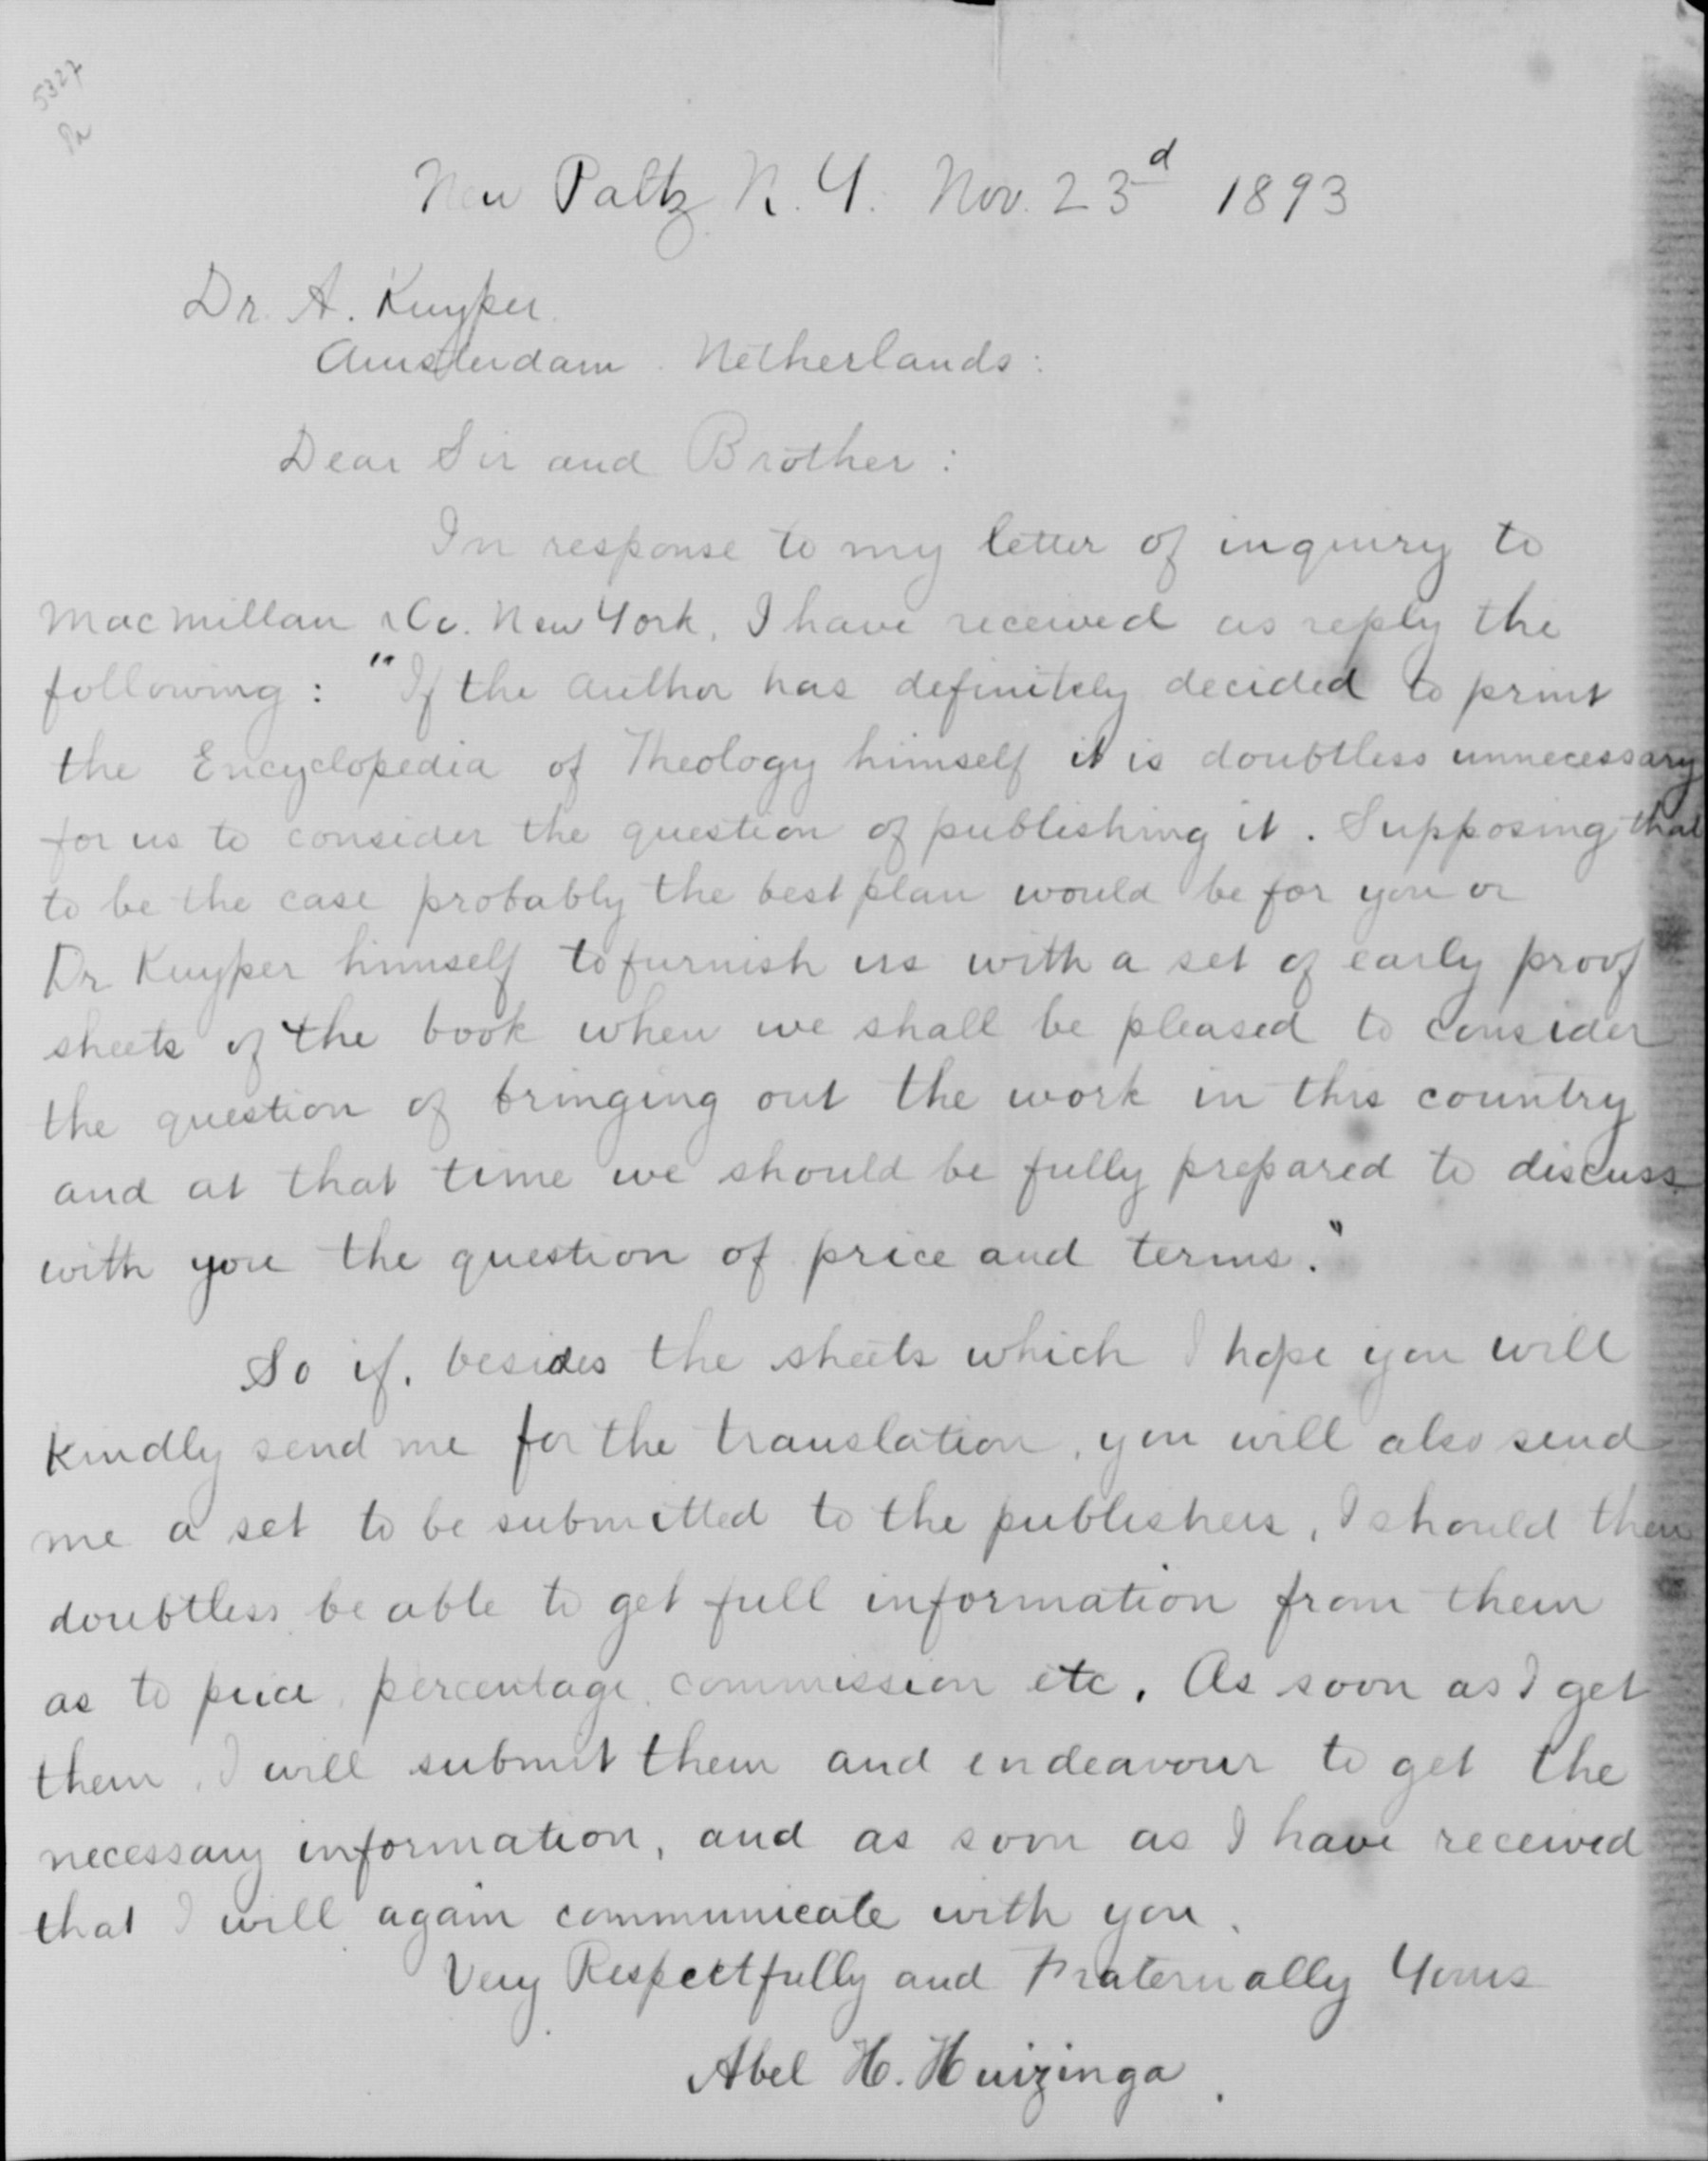 5327
Pa
New Paltz N.Y. Nov. 23d 1893
Dr. A. Kuyper.
Amsterdam. Netherlands:
Dear Sir and Brother:
In response to my letter of inquiry to
Macmillan & Co. New York, I have received as reply the
following: "If the author has definitely decided to print
the Encyclopedia of Theology himself it is doubtless unnecessary
for us to consider the question of publishing it. Supposing that
to be the case probably the best plan would be for you or
Dr Kuyper himself to furnish us with a set of early proof
sheets of the book when we shall be pleased to consider
the question of bringing out the work in this country
and at that time we should be fully prepared to discuss
with you the question of price and terms."
So if, besides the sheets which I hope you will
kindly send me for the translation, you will also send
me a set to be submitted to the publishers, I should then
doubtless be able to get full information from them
as to price, percentage, commission etc. As soon as I get
them, I will submit them and endeavour to get the
necessary information, and as soon as I have received
that I will again communicate with you.
Very Respectfully and Fraternally Yours
Abel H. Huizinga.